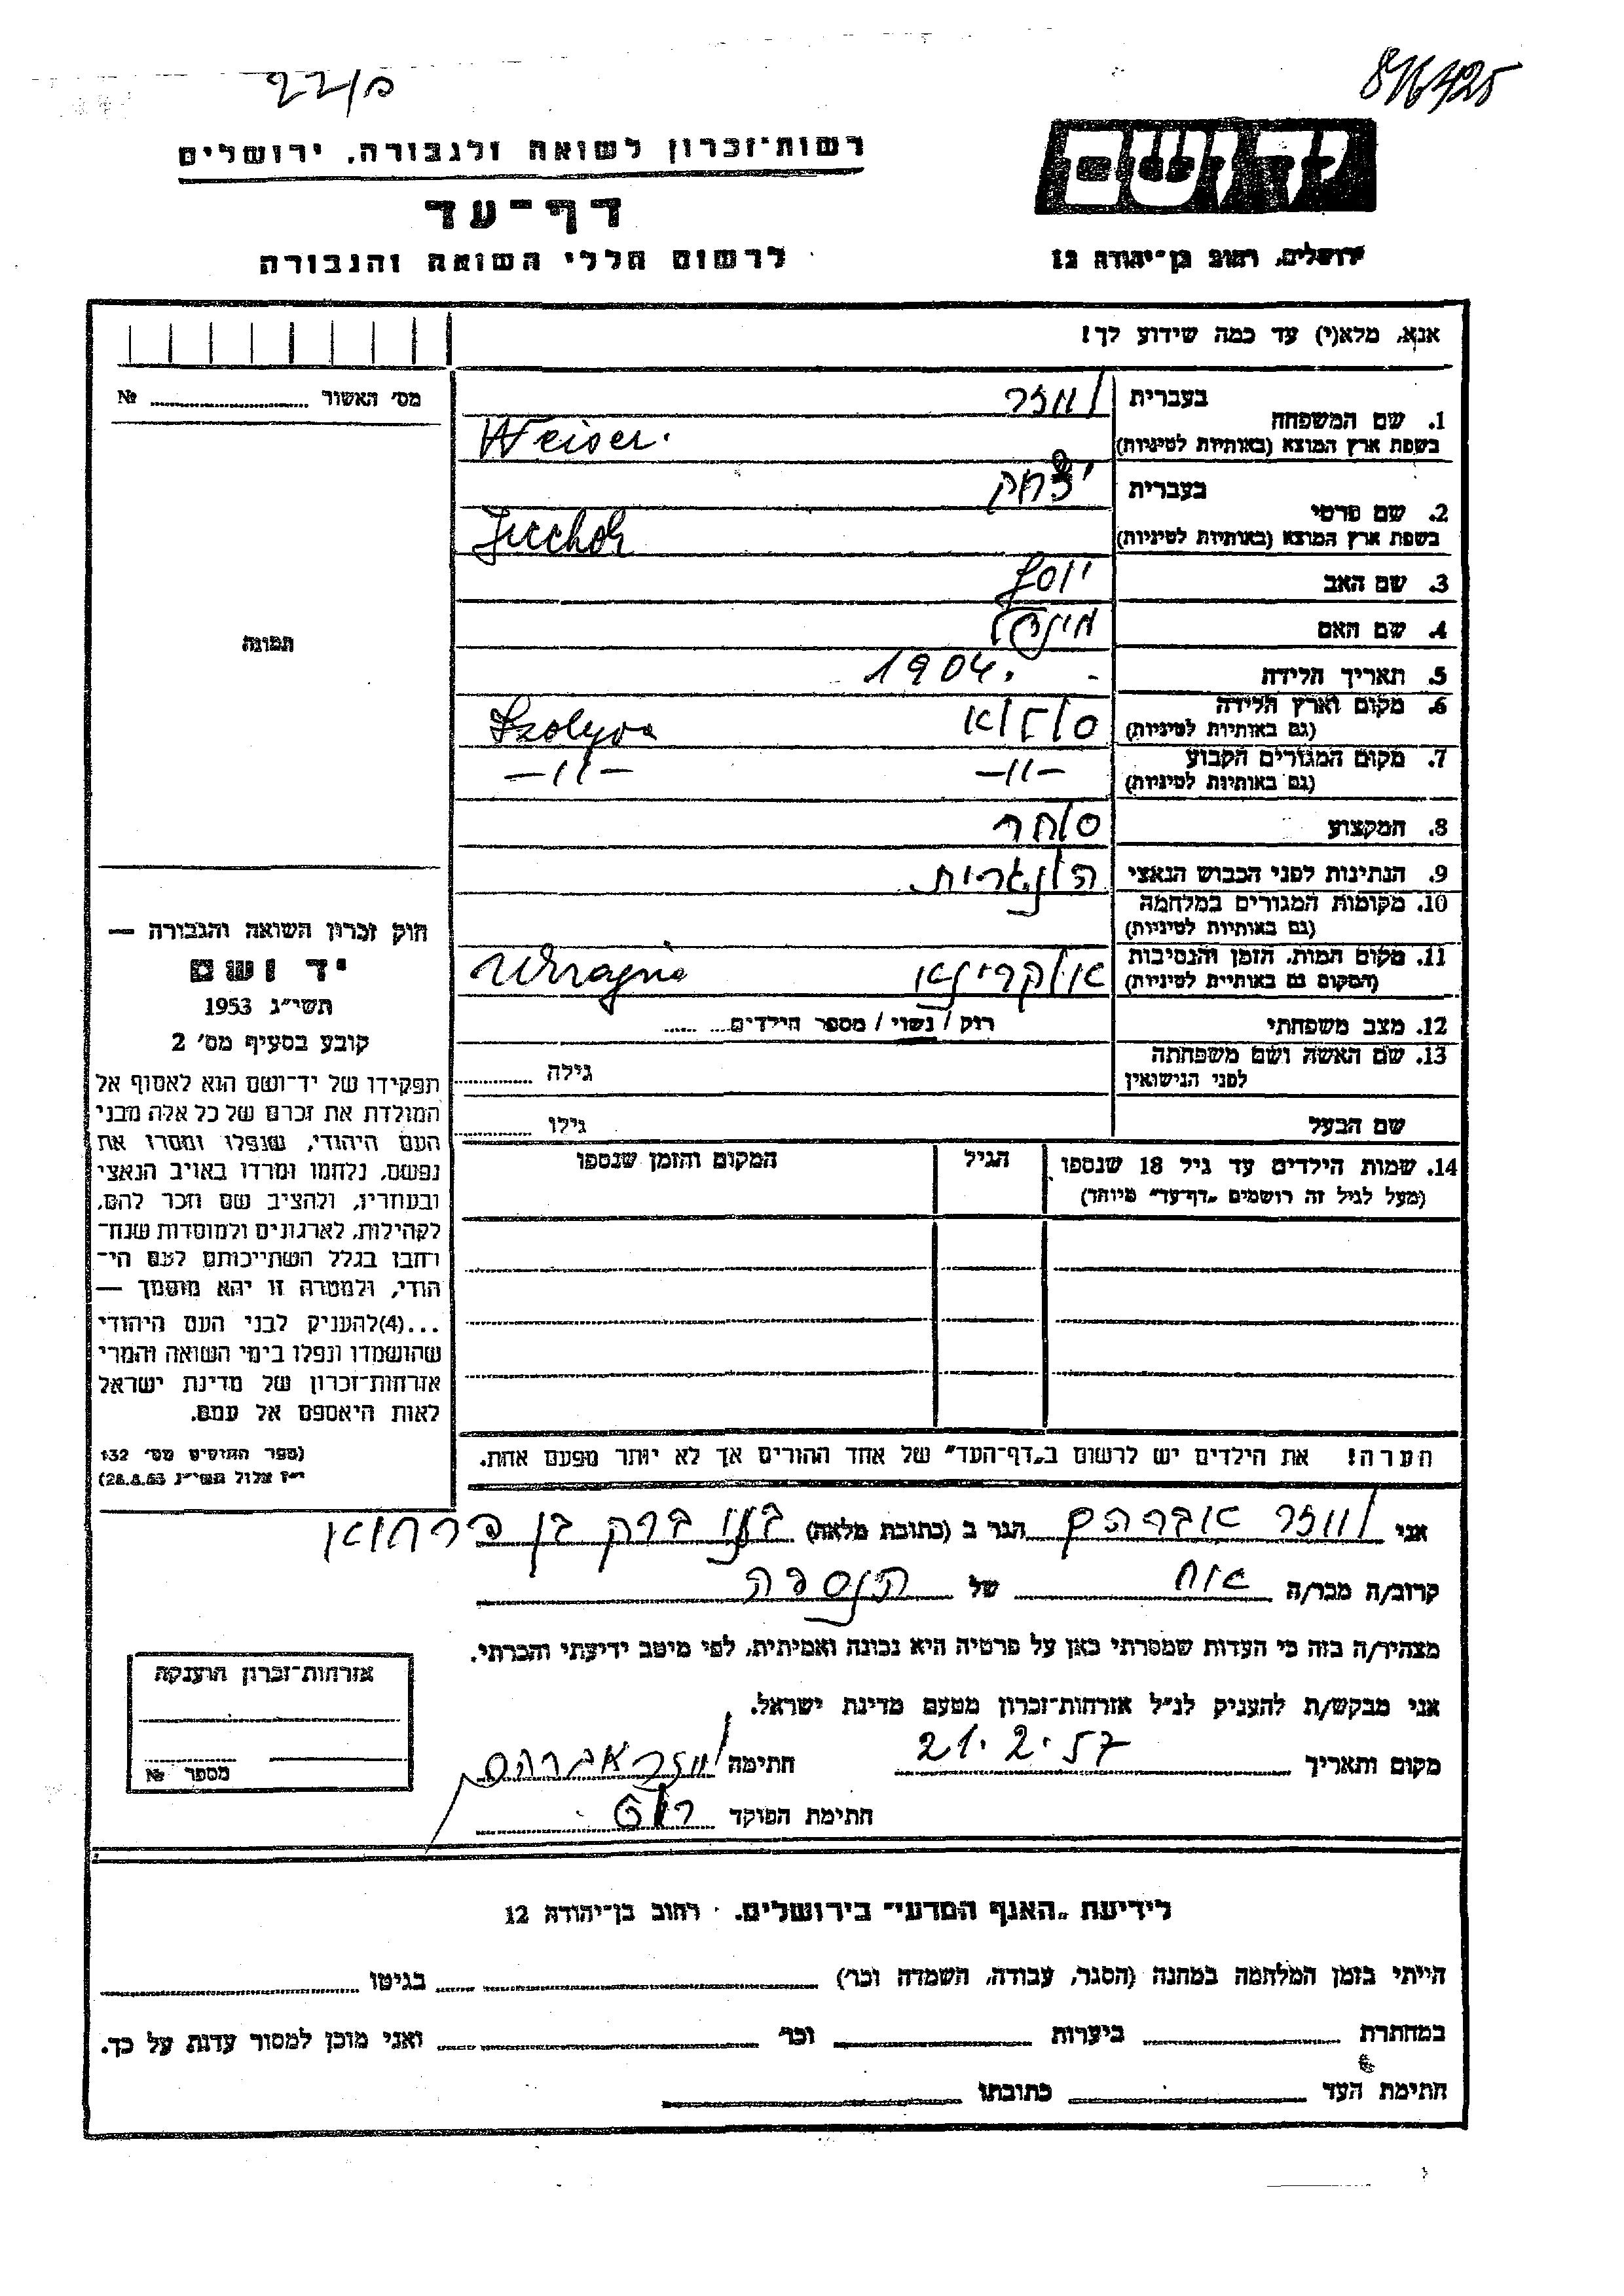 816425
22/מ
יד ושם
ירושלים, רחוב בן־יהודה 12
רשות־זכרון לשואה ולגבורה, ירושלים
דף־עד
לרשום חללי השואה והגבורה
אנא, מלא(י) עד כמה שידוע לך!
מס׳ האשור № 
תמונה
1. שם המשפחה
בעברית ווזר
בשפת ארץ המוצא (באותיות לטיניות) Weiser.
2. שם פרטי
בעברית יצחק
בשפת ארץ המוצא (באותיות לטיניות)
3. שם האב יוסף
4. שם האם
5. תאריך הלידה 1904.
6. מקום וארץ הלידה
(גם באותיות לטיניות) סולווא Szolyva
7. מקום המגורים הקבוע
(גם באותיות לטיניות) -11- -11-
8. המקצוע סוחר
9. הנתינות לפני הכבוש הנאצי הונגרית
10. מקומות המגורים במלחמה
(גם באותיות לטיניות)
11. מקום המות, הזמן והנסיבות
(המקום גם באותיות לטיניות) אוקריינא Ukrajna
12. מצב משפחתי רוק / נשוי / מספר הילדים
13. שם האשה ושם משפחתה
לפני הנישואין גילה
שם הבעל גילו
14. שמות הילדים עד גיל 18 שנספו הגיל המקום והזמן שנספו
(מעל לגיל זה רושמים „דף־עד״ מיוחד)
הערה! את הילדים יש לרשום ב„דף־העד״ של אחד ההורים אך לא יותר מפעם אחת.
חוק זכרון השואה והגבורה —
יד ושם
תשי״ג 1953
קובע בסעיף מס׳ 2
תפקידו של יד־ושם הוא לאסוף אל
המולדת את זכרם של כל אלה מבני
העם היהודי, שנפלו ומסרו את
נפשם, נלחמו ומרדו באויב הנאצי
ובעוזריו, ולהציב שם וזכר להם,
לקהילות, לארגונים ולמוסדות שנח־
רחבו בגלל השתייכותם לעם הי־
הודי, ולמטרה זו יהא מוסמך —
...(4)להעניק לבני העם היהודי
שהושמדו ונפלו בימי השואה והמרי
אזרחות־זכרון של מדינת ישראל
לאות היאספם אל עמם.
(ספר החוקים מס׳ 132
י״ז אלול תשי״ג 28.8.53)
אני ווזר אברהם הגר ב (כתובת מלאה) בני ברק בן פרחוא
קרוב/ה מכר/ה אח של הנספה
מצהיר/ה בזה כי העדות שמסרתי כאן על פרטיה היא נכונה ואמיתית, לפי מיטב ידיעתי והכרתי.
אני מבקש/ת להעניק לנ״ל אזרחות־זכרון מטעם מדינת ישראל.
מקום ותאריך 21.2.57 חתימה ווזר אברהם
חתימת הפוקד
אזרחות־זכרון הוענקה
מספר №
לידיעת „האגף המדעי״ בירושלים. רחוב בן־יהודה 12
הייתי בזמן המלחמה במחנה (הסגר, עבודה, השמדה וכר׳) בגיטו
במחתרת ביערות וכר׳ ואני מוכן למסור עדות על כך.
חתימת העד כתובתו